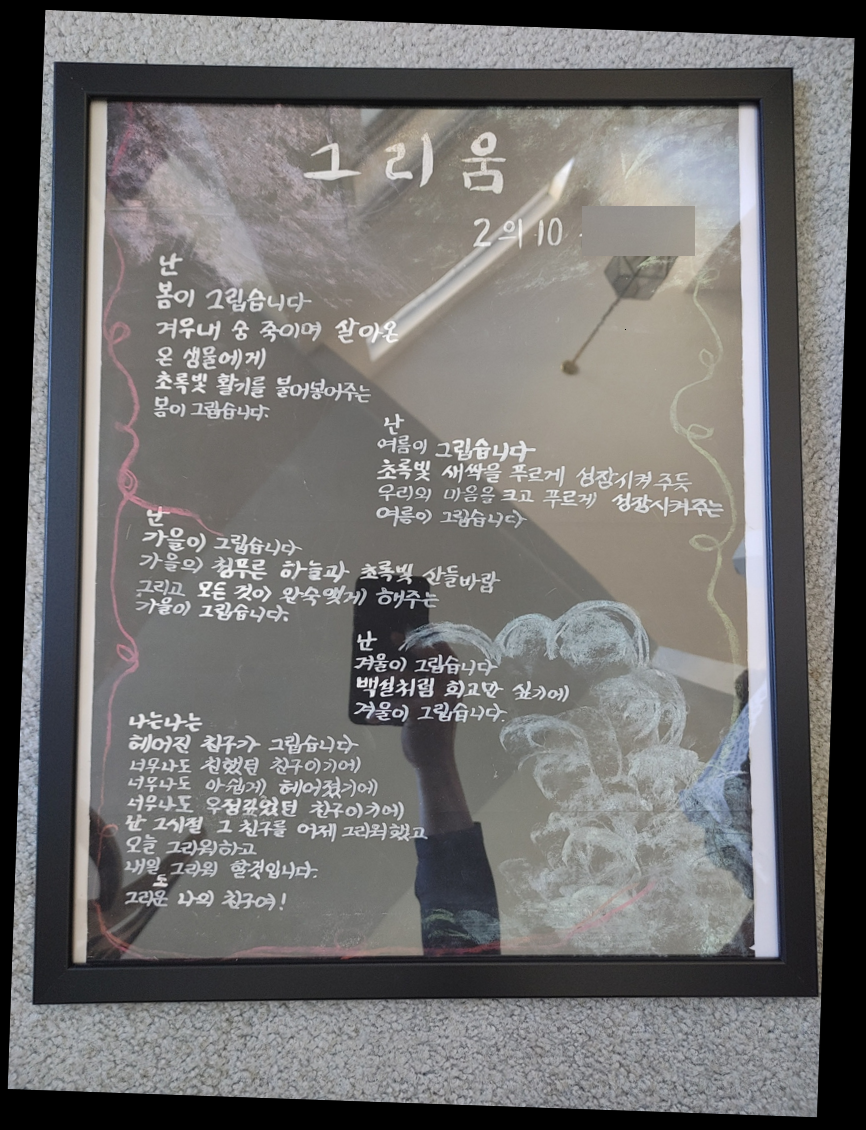 그리움
2의 10
난
봄이 그립습니다
겨우내 숨 죽이며 살아온
온 생물에게
초록빛 활기를 불어넣어주는
봄이 그립습니다.
난
여름이 그립습니다
초록빛 새싹을 푸르게 성장시켜 주듯
우리의 마음을 크고 푸르게 성장시켜주는
여름이 그립습니다
난
가을이 그립습니다
가을의 청푸른 하늘과 초록빛 산들바람
그리고 모든 것이 완숙엤게 해주는
가을이 그립습니다.
난
겨울이 그립습니다
백설처럼 희고만 싶기에
겨울이 그립습니다.
나는나는
헤어진 친구가 그립습니다
너무나도 친했던 친구이기에
너무나도 아쉽게 헤어졌기에
너무나도 우정깊었던 친구이기에
난 그시절 그 친구를 어제 그리워했고
오늘 그리워하고
내일도 그리워 할것입니다.
그리운 나의 친구여!